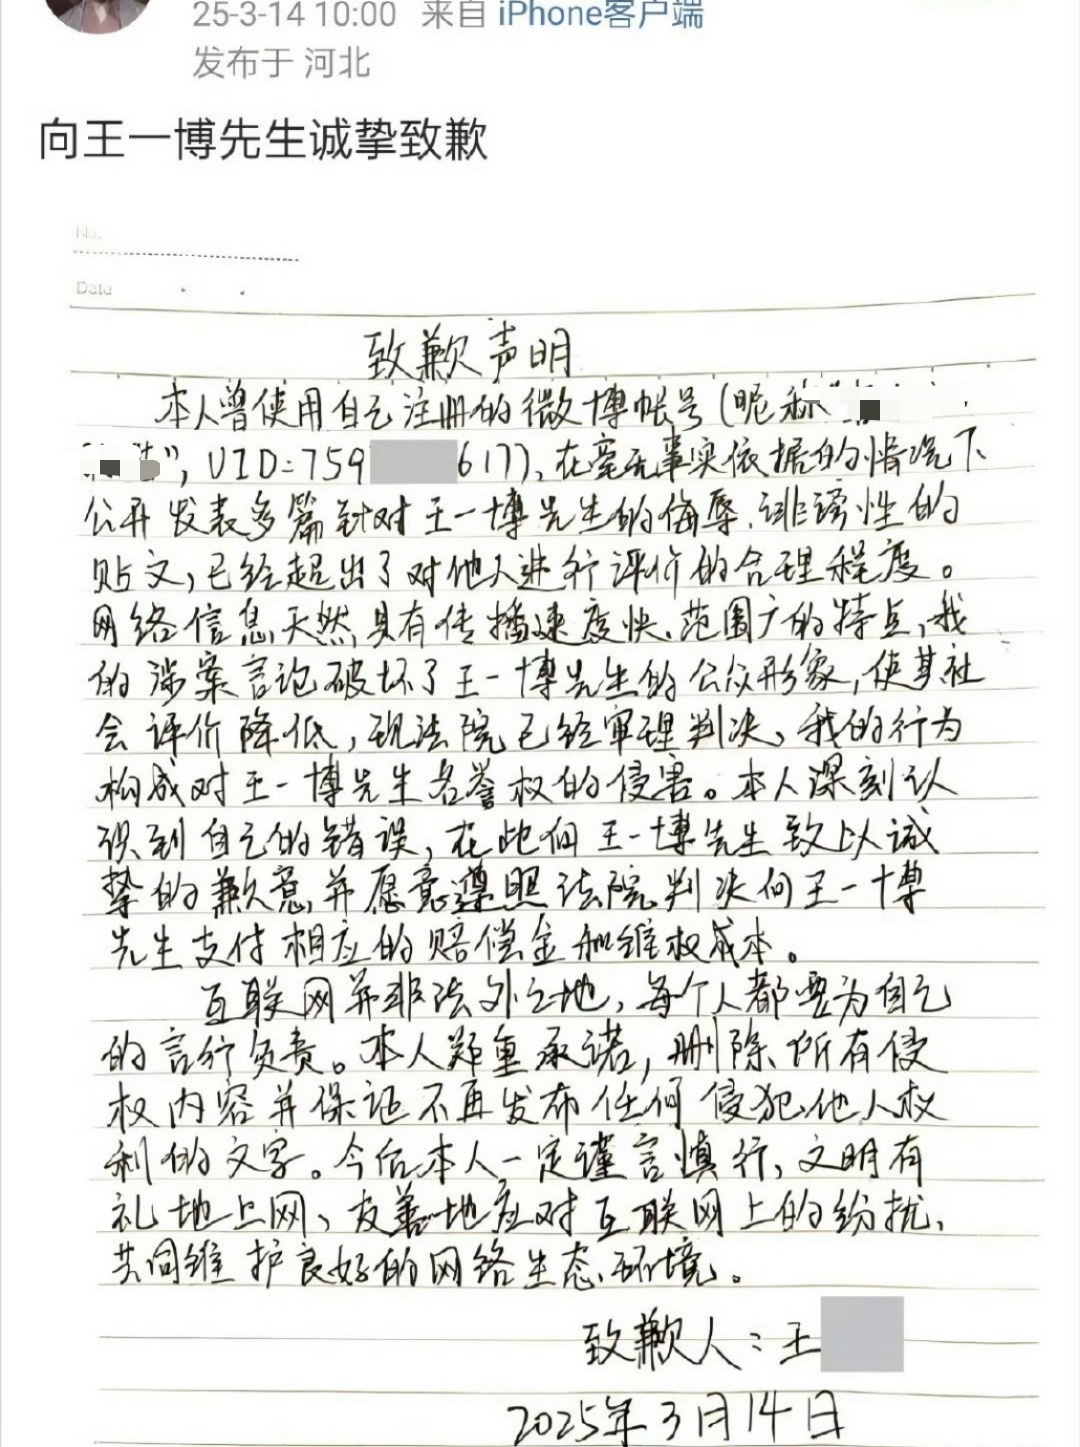 25-3-14 10:00 来自 iPhone客户端
发布于 河北
向王一博先生诚挚致歉
No.
Date
致歉声明
本人曾使用自己注册的微博帐号(昵称"
", UID:759 617),在毫无事实依据的情况下
公开发表多篇针对王一博先生的侮辱、诽谤性的
贴文,已经超出了对他人进行评价的合理程度。
网络信息天然具有传播速度快、范围广的特点,我
的涉案言论破坏了王一博先生的公众形象,使其社
会评价降低,现法院已经审理判决,我的行为
构成对王一博先生名誉权的侵害。本人深刻认
识到自己的错误,在此向王一博先生致以诚
挚的歉意,并愿意遵照法院判决向王一博
先生支付相应的赔偿金和维权成本。
互联网并非法外之地,每个人都要为自己
的言行负责。本人郑重承诺,删除所有侵
权内容并保证不再发布任何侵犯他人权
利的文字。今后本人一定谨言慎行,文明有
礼地上网、友善地应对互联网上的纷扰,
共同维护良好的网络生态环境。
致歉人:王
2025年3月14日